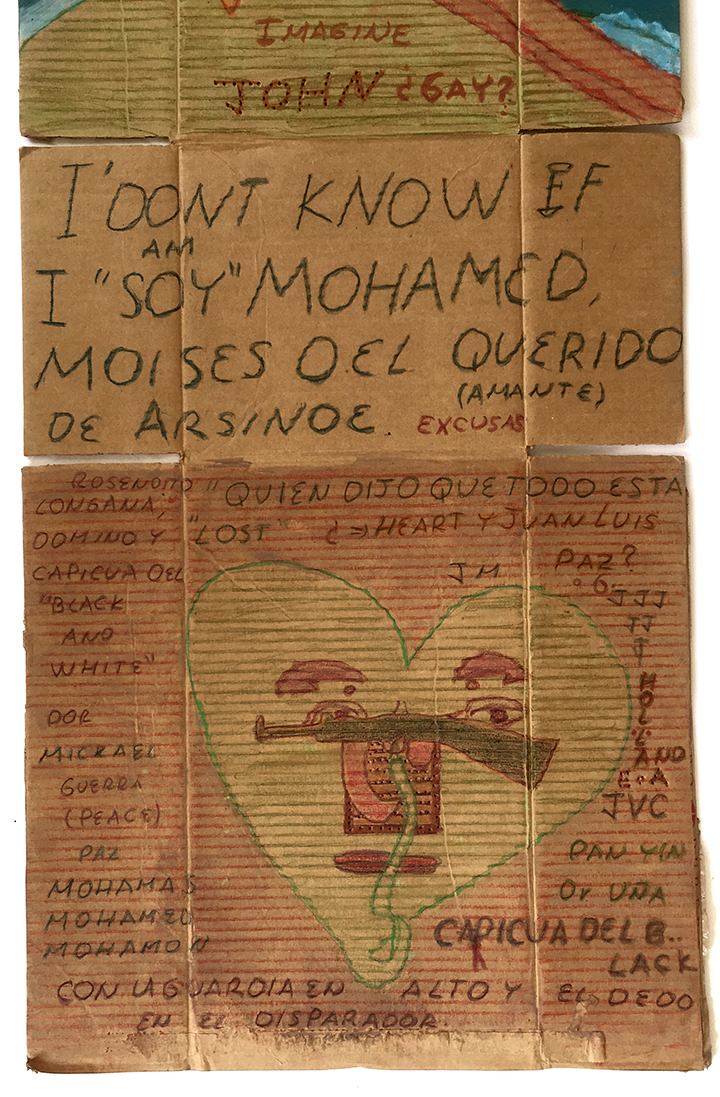 IMAGINE
JOHN ¿GAY?
I'DONT KNOW EF
AM
I "SOY" MOHAMED,
MOISES O.EL QUERIDO
(AMANTE)
DE ARSINOE. EXCUSAS
"QUIEN DIJO QUE TODO ESTA
LONGANA,
DOMINO Y "LOST" ? => HEART Y JUAN LUIS
CAPICUA DEL
PAZ?
JM
"BLACK
AND
WHITE"
JJJ
JJ
J
DOR
MICKAEL
GUERRA
(PEACE)
PAZ
MOHAMAS
MOHAMED
MOHAMON
HOL
AND
E.A
JVC
PAN YIN
Or UÑA
CAPICUA DEL B..
LACK
CON LA GUARDIA EN ALTO Y EL DEDO
EN EL DISPARADOR.